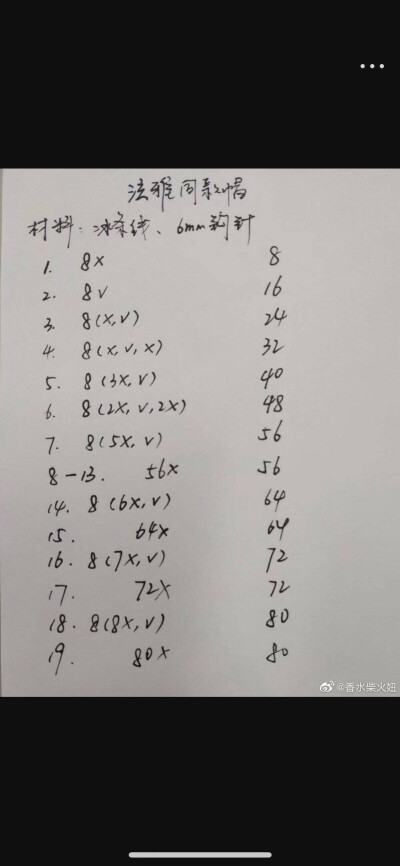 法雅同款帽
材料：冰条线、6mm钩针
1. 8X 8
2. 8V 16
3. 8(X,V) 24
4. 8(X,V,X) 32
5. 8(3X,V) 40
6. 8(2X,V,2X) 48
7. 8(5X,V) 56
8-13. 56X 56
14. 8(6X,V) 64
15. 64X 64
16. 8(7X,V) 72
17. 72X 72
18. 8(8X,V) 80
19. 80X 80
@香水柴火妞